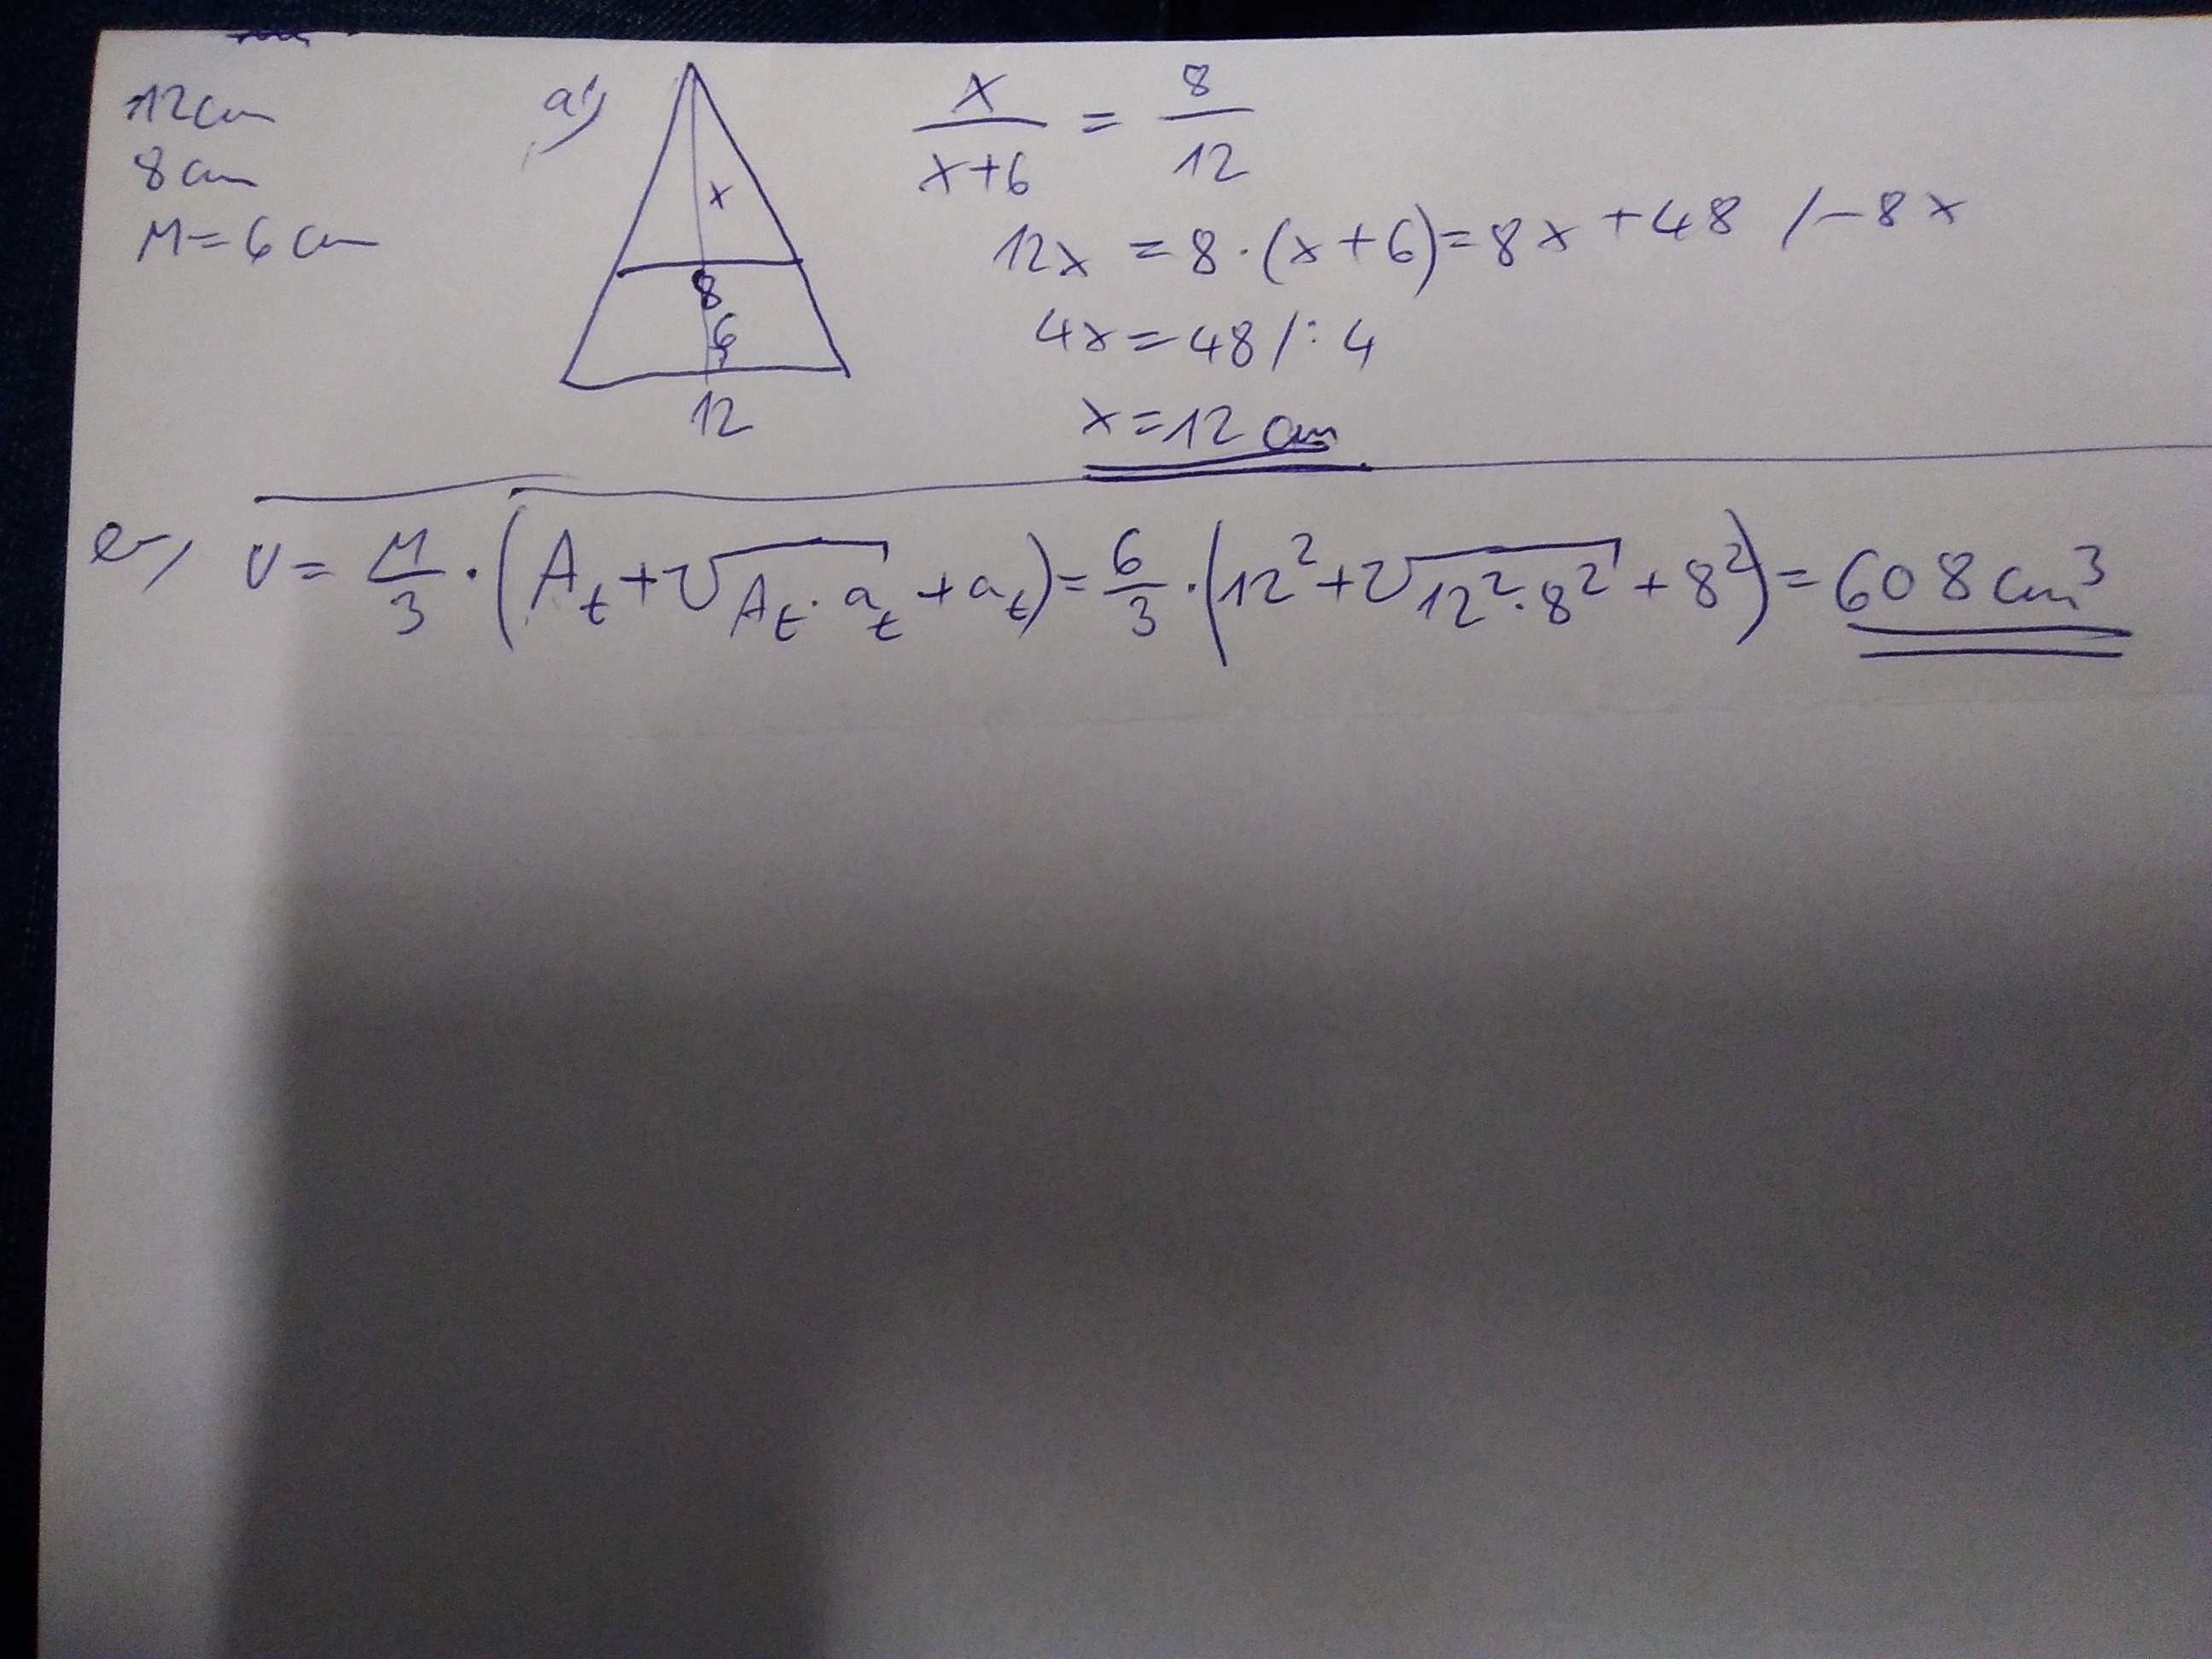 12cm
8cm
M=6cm
a)
x
8
6
12
x/(x+6) = 8/12
12x = 8·(x+6)=8x+48 /-8x
4x=48/:4
x=12 cm
V= M/3 · (A_t+√(A_t·a_t)+a_t)= 6/3 ·(12²+√(12²·8²)+8²)=608cm³